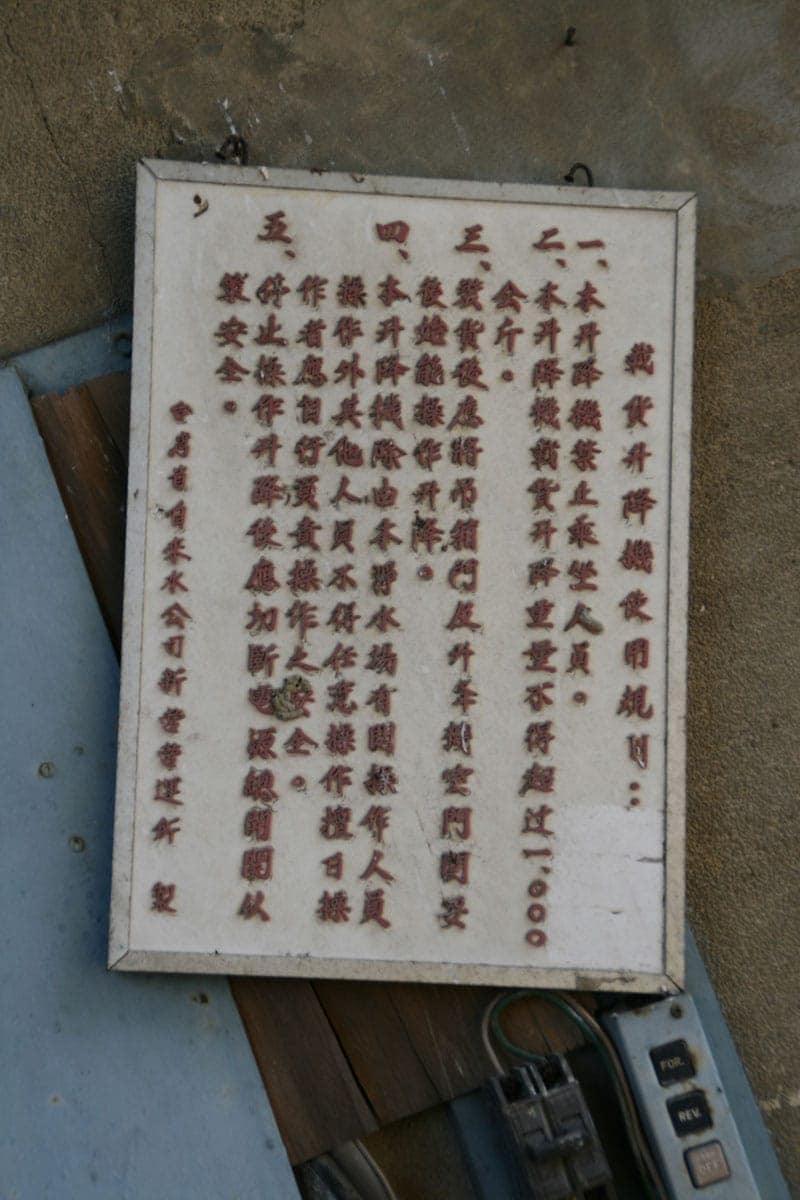 載貨升降機使用規則：
一、本升降機禁止乘坐人員。
二、本升降機載貨升降重量不得超过一.○○○
公斤。
三、裝貨後應將吊籠門及升降機室門関妥
後始能操作升降。
四、本升降機除由本淨水場有関操作人員
操作外其他人員不得任意操作擅自操
作者應自行負責操作之安全。
五、停止操作升降後應切斷電源總開関以
策安全。
台灣省自來水公司新營營運所 製
FOR.
REV.
OFF